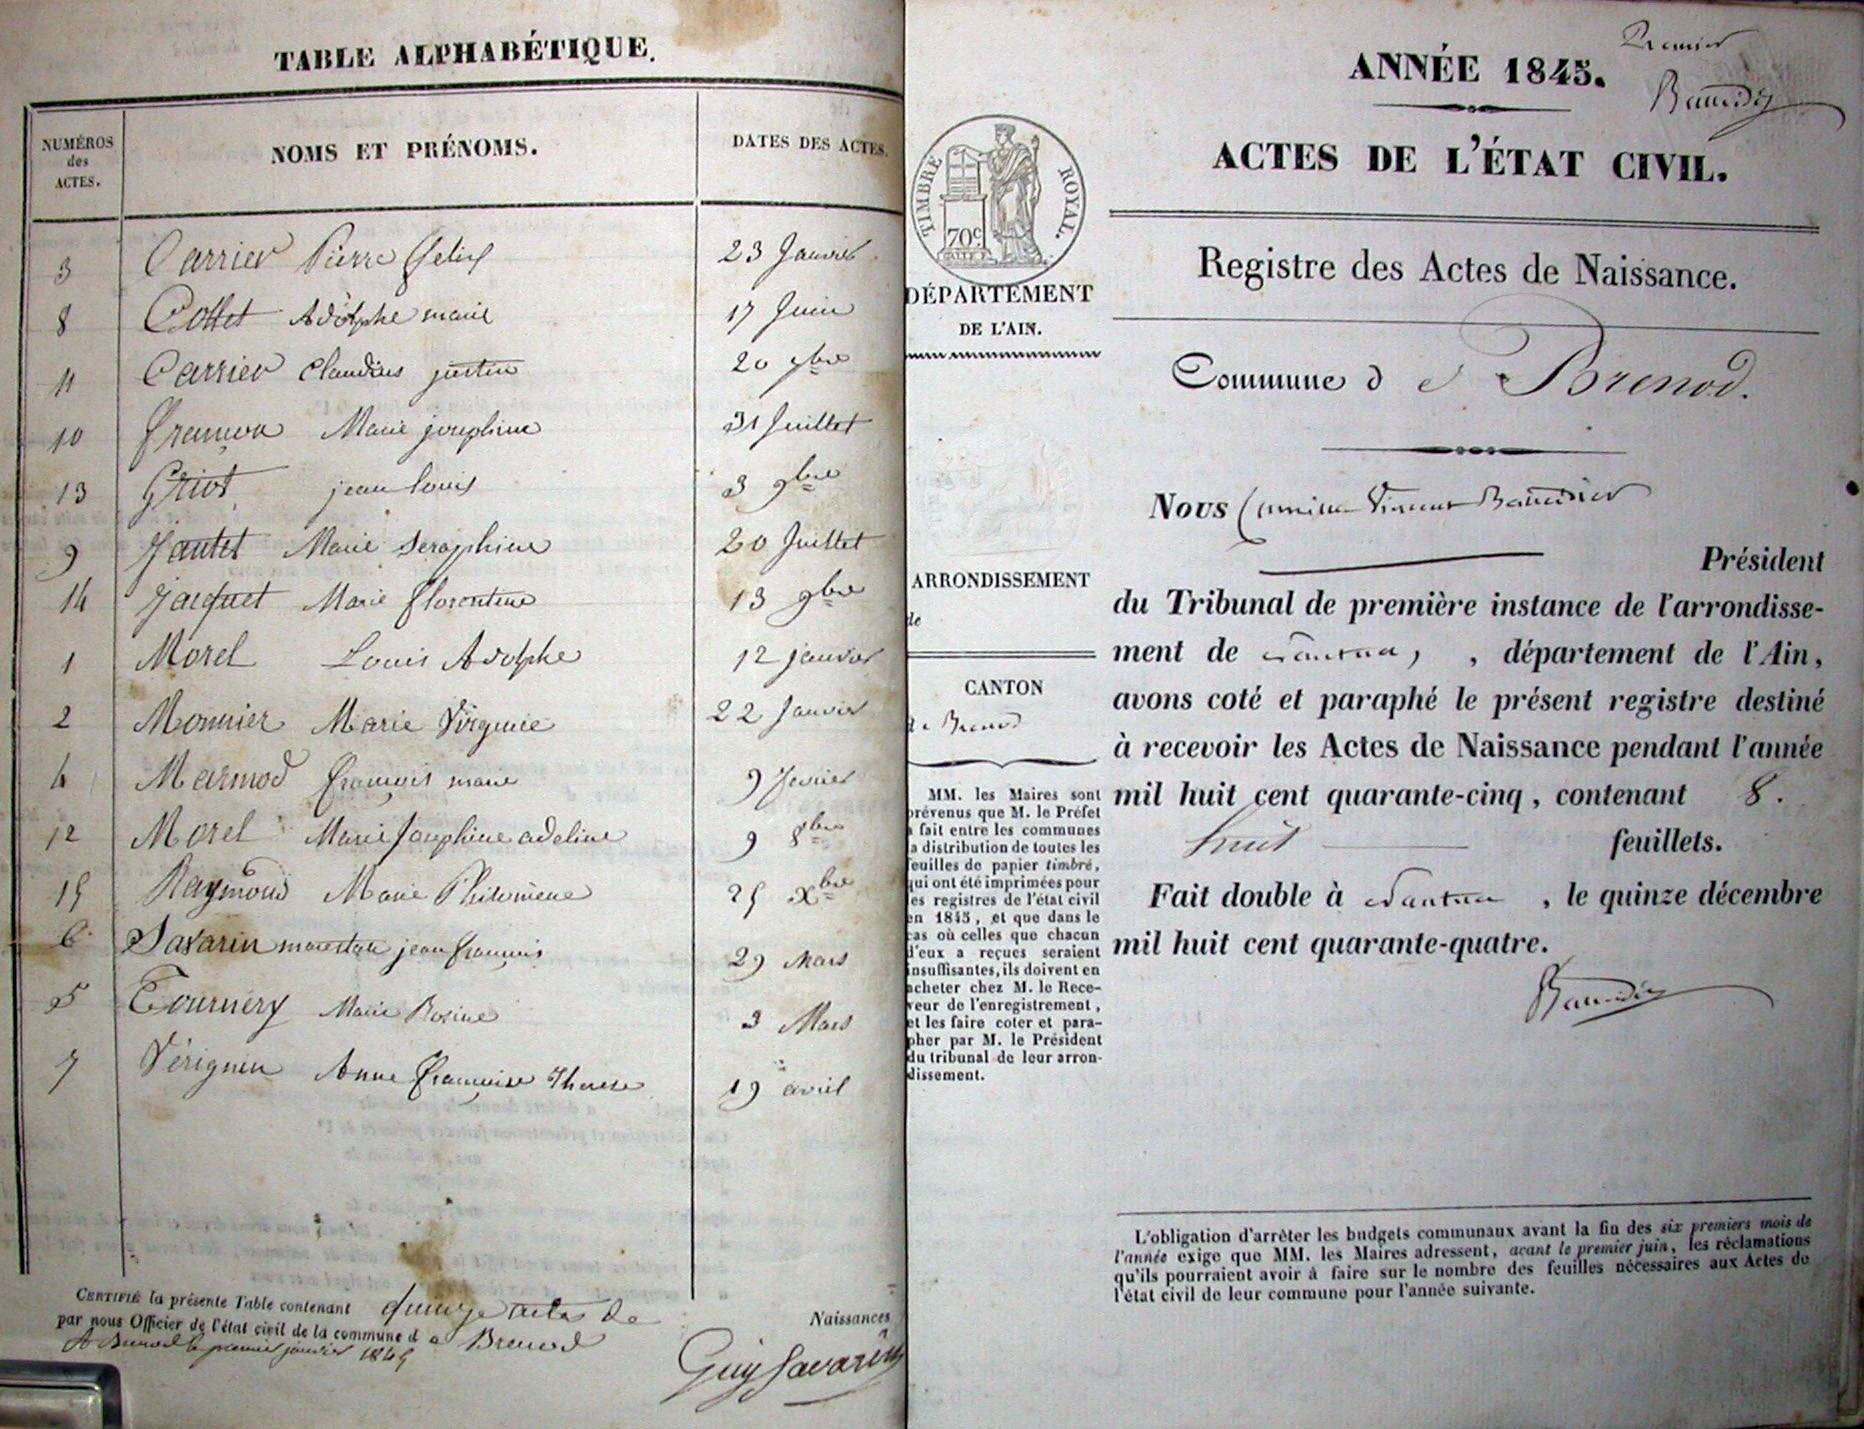 TABLE ALPHABÉTIQUE.
NUMÉROS des ACTES.
NOMS ET PRÉNOMS.
DATES DES ACTES.
3 Carrier Pierre Félix 23 Janvier
8 Collet Adolphe marie 17 Juin
11 Carrier Claudius justin 20 7bre
10 Marie joséphine 31 Juillet
13 Griot jean louis 3 9bre
9 Jantet Marie Seraphine 20 Juillet
14 Jacquet Marie florentine 13 9bre
1 Morel Louis Adolphe 12 janvier
2 Monnier Marie Virginie 22 Janvier
4 Marmod françois marie 9 fevrier
12 Morel Marie Joséphine adeline 9 8bre
15 Raymond Marie Philomène 25 Xbre
6 Savarin jean françois 29 Mars
5 Tournery Marie Rosine 3 Mars
7 Anne françoise Therese 19 avril
CERTIFIÉ la présente Table contenant quinze actes de Naissances
par nous Officier de l'état civil de la commune d e Brenod
A Brenod le premier janvier 1845
Guy Savarin
Premier
Baudin
ANNÉE 1845.
ACTES DE L'ÉTAT CIVIL.
TIMBRE ROYAL.
70c
DÉPARTEMENT
DE L'AIN.
Registre des Actes de Naissance.
Commune d e Brenod.
Nous Vincent
Président
du Tribunal de première instance de l'arrondisse-
ment de Nantua, , département de l'Ain,
avons coté et paraphé le présent registre destiné
à recevoir les Actes de Naissance pendant l'année
mil huit cent quarante-cinq, contenant 8.
huit feuillets.
Fait double à Nantua, le quinze décembre
mil huit cent quarante-quatre.
ARRONDISSEMENT
de
CANTON
de Brenod
MM. les Maires sont
prévenus que M. le Préfet
a fait entre les communes
la distribution de toutes les
feuilles de papier timbré,
qui ont été imprimées pour
les registres de l'état civil
en 1845, et que dans le
cas où celles que chacun
d'eux a reçues seraient
insuffisantes, ils doivent en
acheter chez M. le Rece-
veur de l'enregistrement,
et les faire coter et para-
pher par M. le Président
du tribunal de leur arron-
dissement.
L'obligation d'arrêter les budgets communaux avant la fin des six premiers mois de
l'année exige que MM. les Maires adressent, avant le premier juin, les réclamations
qu'ils pourraient avoir à faire sur le nombre des feuilles nécessaires aux Actes de
l'état civil de leur commune pour l'année suivante.